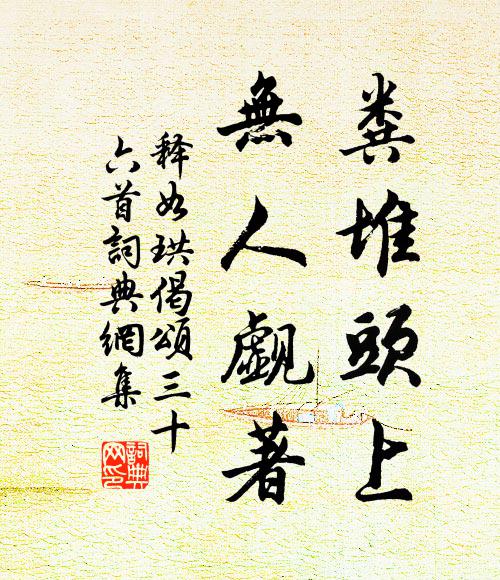 粪堆頭上
無人覷著
释如珙偈頌三十
六首詞典網集
詞典
网印